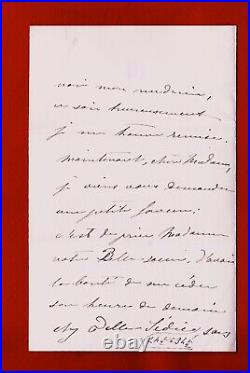 voir mon médecin,
ce soir heureusement
je me trouve remise.
maintenant, chère Madame,
je viens vous demander
une petite faveur;
c'est de prier Madame
votre Belle-soeur, d'avoir
la bonté de me céder
son heure de demain
chez Delle Fédier, sans